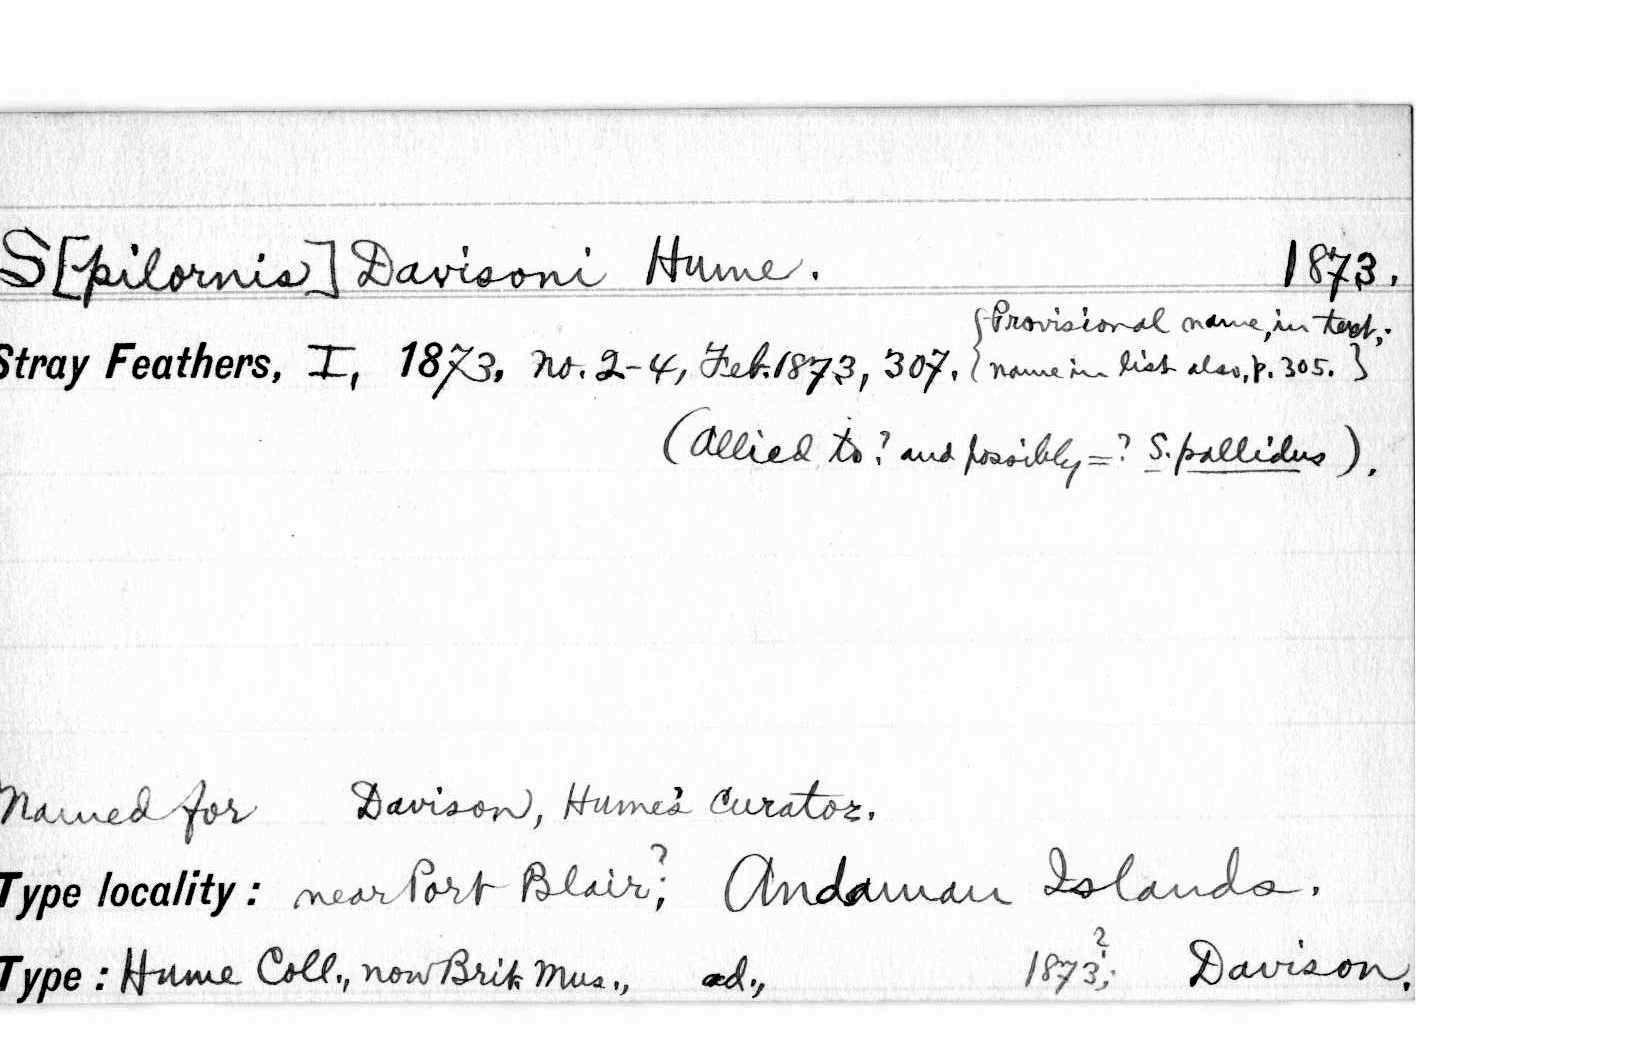 S[pilornis] Davisoni Hume. 1873.
Stray Feathers, I, 1873, no. 2-4, Feb. 1873, 307. {Provisional name, in text;
name in list also, p. 305.}
(Allied to? and possibly =? S. pallidus).
Named for Davison, Hume's curator.
Type locality: near Port Blair?; Andaman Islands.
Type: Hume Coll., now Brit. Mus., ad., 1873?; Davison.